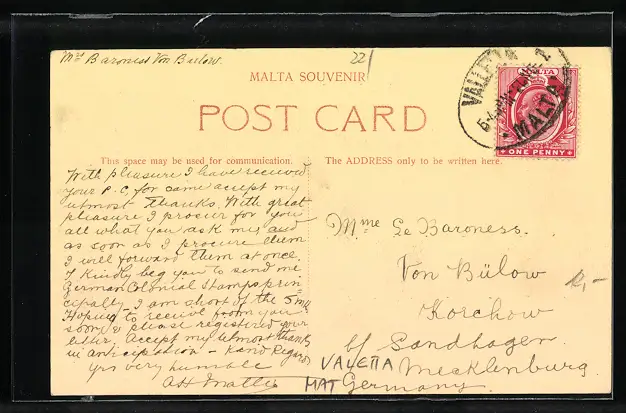 Mrs Baroness Von Bülow.
22/
MALTA SOUVENIR
POST CARD
VALLETTA
MALTA
MALTA
ONE PENNY
This space may be used for communication.
The ADDRESS only to be written here.
With pleasure I have received
your P.C. for came accept my
utmost thanks. With great
pleasure I procure for you
all what you ask me, and
as soon as I procure them
I will forward them at once.
I Kindly beg you to send me
German Colonial Stamps prin=
cipally – I am short of the 5 mk
Hoping to receive from you
soon & please registered your
letter, Accept my utmost thanks
in anticipation – Kand Regards
Yrs very humble
Mme Le Baroness.
Von Bülow
Korchow
b/ Sandhagen
Mecklenburg.
Germany.
VALETTA
MAT